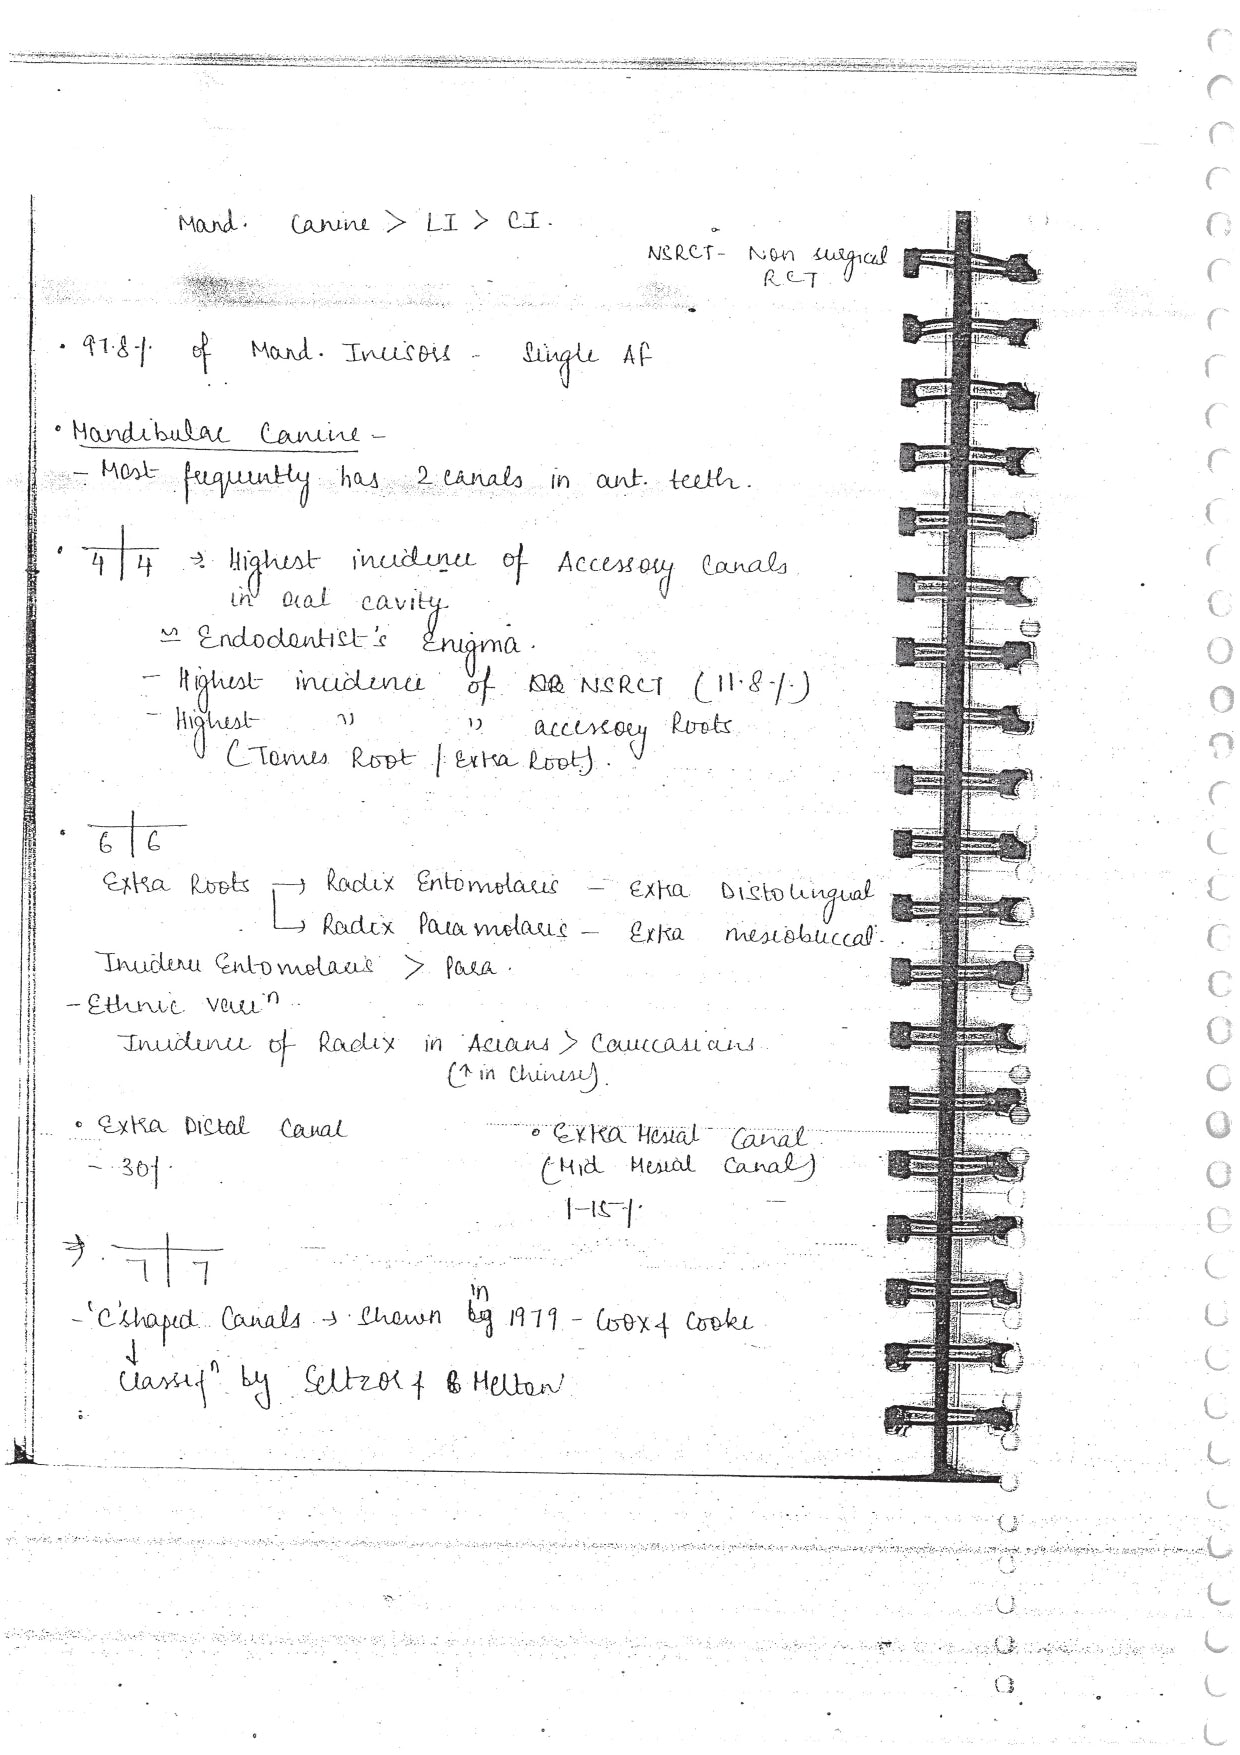 Mand. Canine > LI > CI.
NSRCT - Non surgical
RCT
• 97.8% of Mand. Incisors - Single AF
• Mandibular Canine -
- Most frequently has 2 canals in ant. teeth.
• 4 | 4 → Highest incidence of Accessory Canals
in oral cavity
≈ Endodontist's Enigma.
- Highest incidence of NSRCT (11.8%)
- Highest " " accessory Roots
(Tomes Root / Extra Root).
• 6 | 6
Extra Roots → Radix Entomolaris - Extra Distolingual
↳ Radix Paramolaris - Extra mesiobuccal.
Incidence Entomolaris > Para.
- Ethnic variⁿ
Incidence of Radix in Asians > Cauccasians
(↑ in Chinese).
• Extra Distal Canal
- 30%.
• Extra Mesial Canal
(Mid Mesial Canal)
1-15%.
⇒ 7 | 7
- 'C' shaped Canals → Shown in 1979 - Coox & Cooke
↓
Classifⁿ by Seltzor & Melton